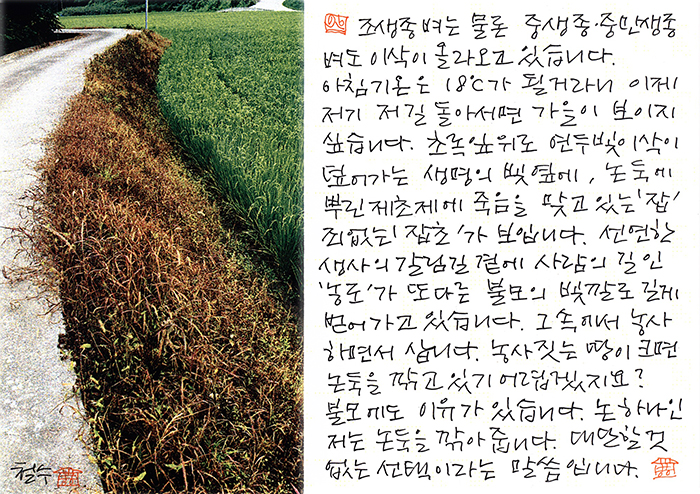 조생종 벼는 물론 중생종·중만생종
벼도 이삭이 올라오고 있습니다.
아침기온은 18℃가 될거라니 이제
저기 저길 돌아서면 가을이 보이지
싶습니다. 초록잎위로 연두빛이삭이
덮어가는 생명의 빛옆에, 논둑에
뿌린제초제에 죽음을 맞고있는 '잡'
죄없는 '잡초'가 보입니다. 선연한
생사의 갈림길 곁에 사람의 길인
'농로'가 또다른 불모의 빛깔로 길게
벋어가고 있습니다. 그속에서 농사
하면서 삽니다. 농사짓는 땅이 크면
논둑을 깎고 있기 어렵겠지요?
불모에도 이유가 있습니다. 논하나인
저는 논둑을 깎아줍니다. 대단할것
없는 선택이라는 말씀입니다.
철수